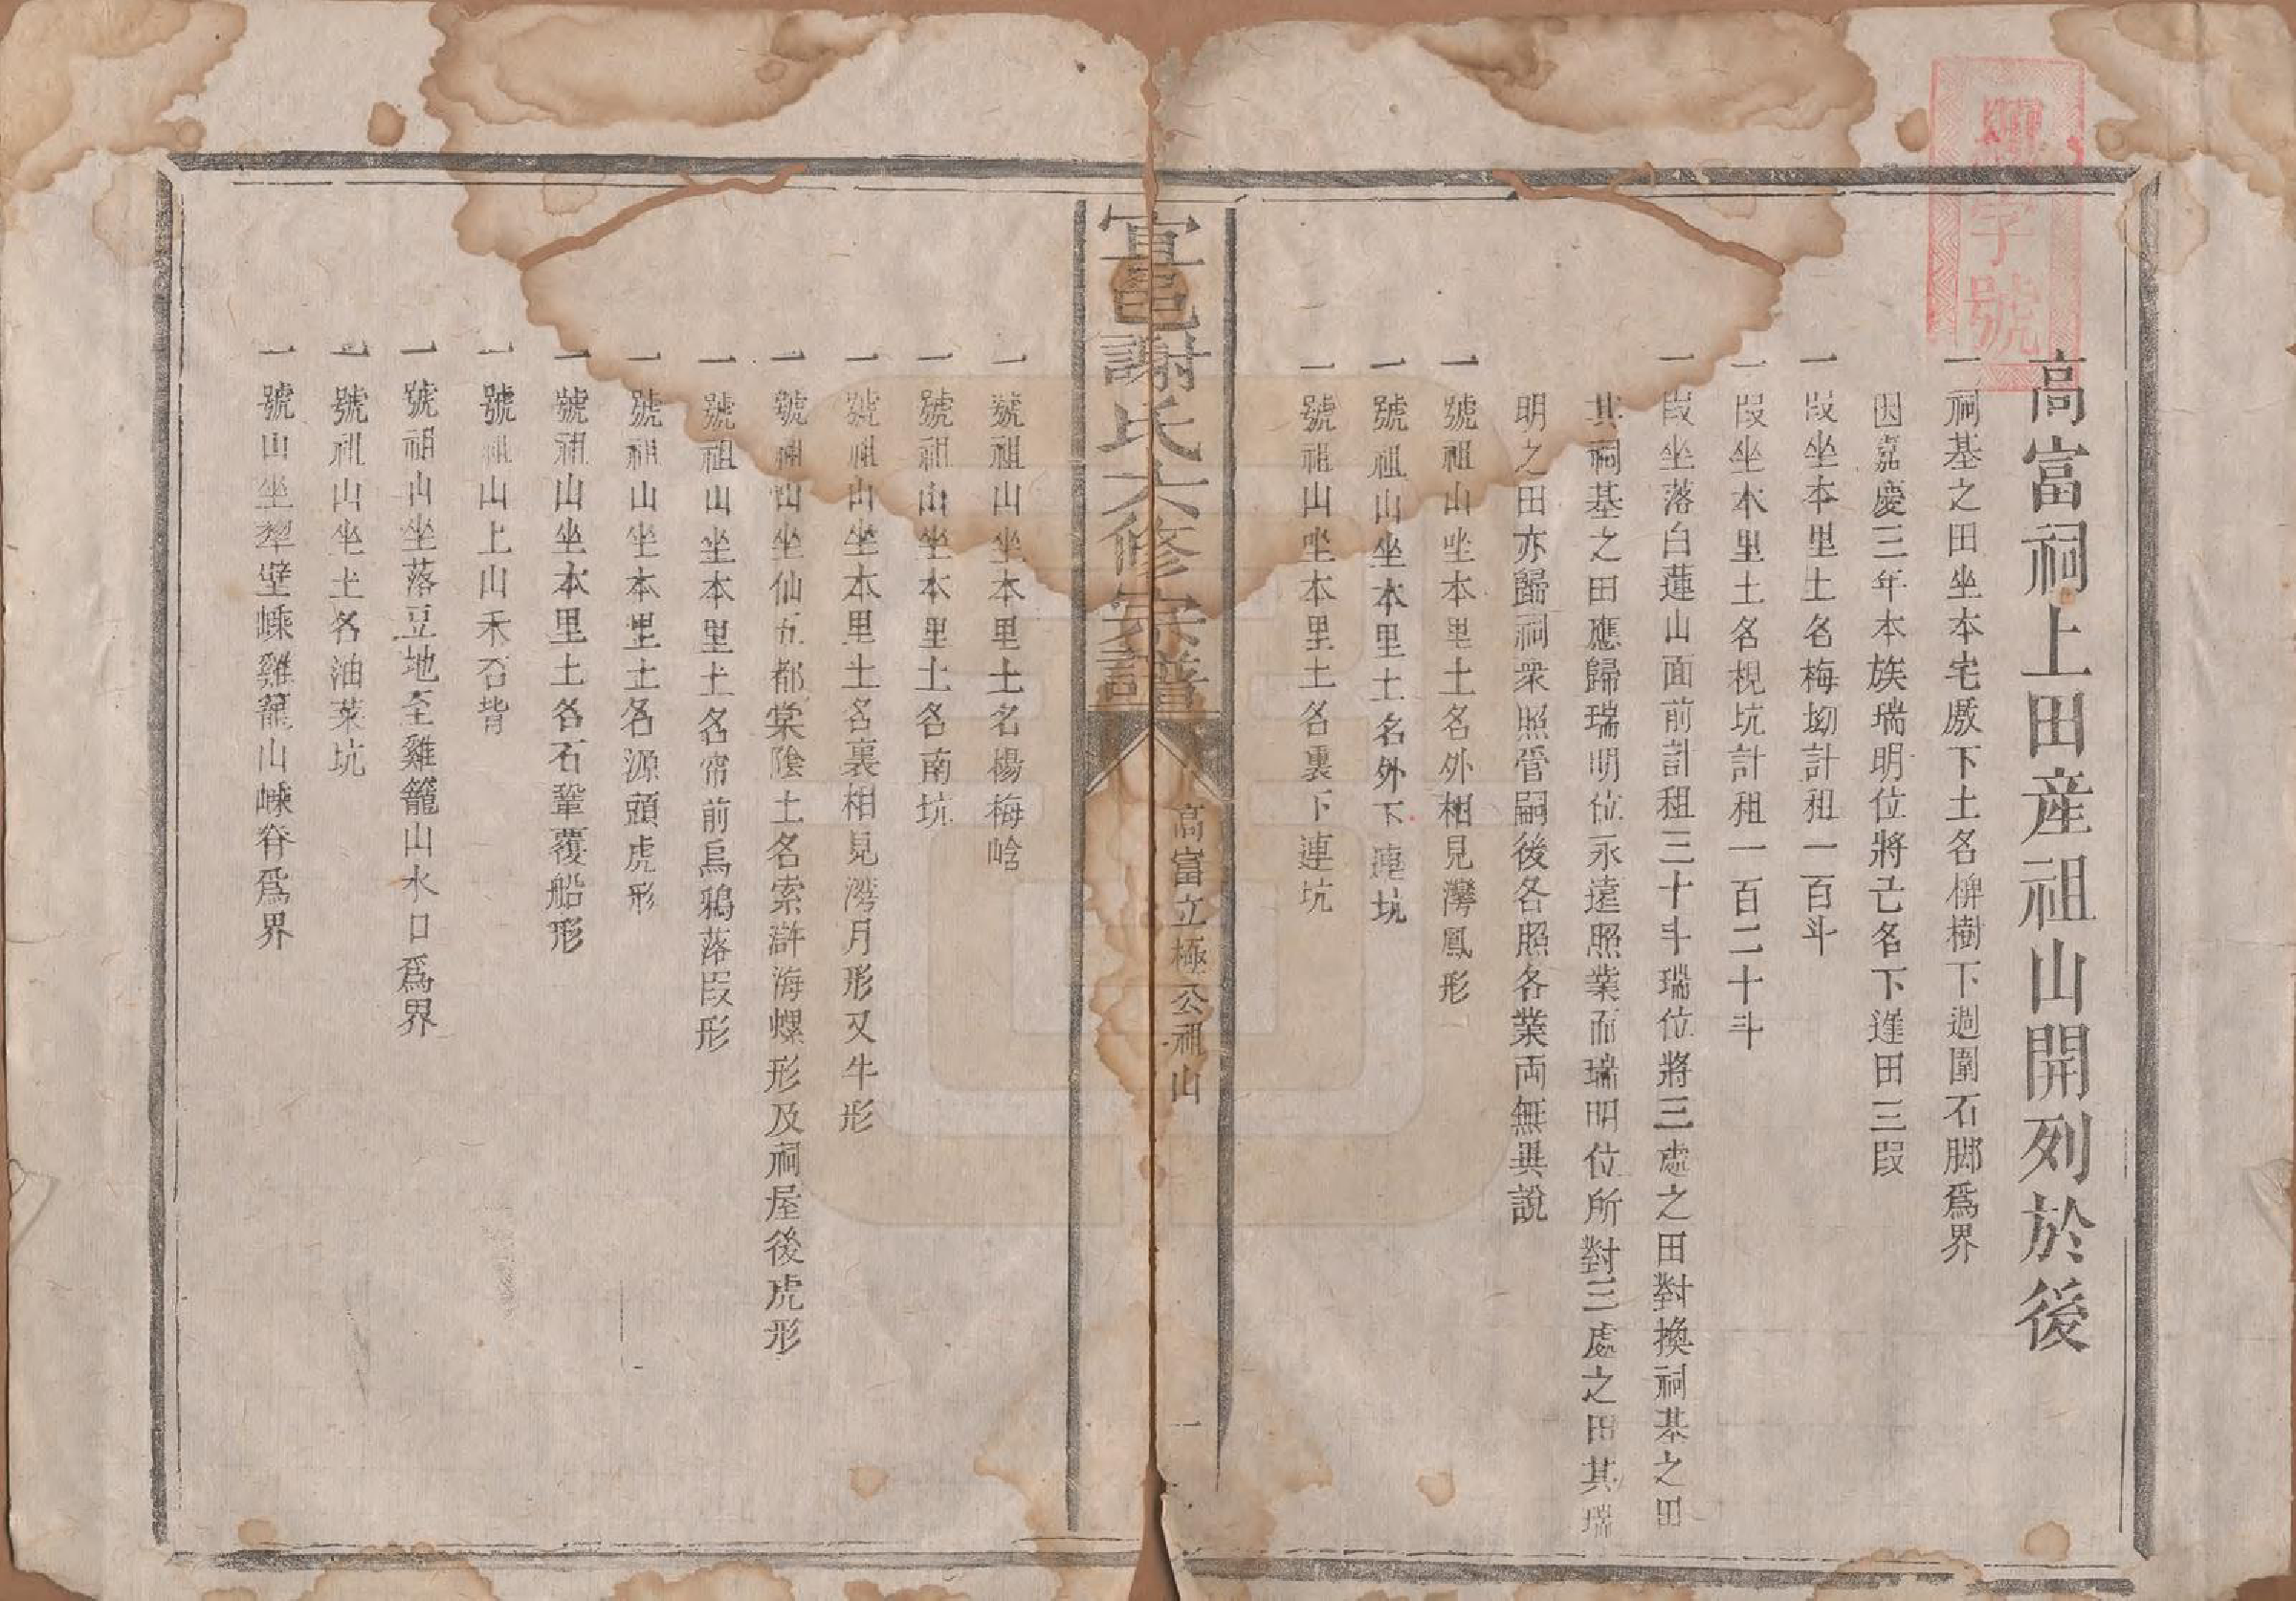 字號
高富祠上田産祖山開列於後
一祠基之田坐本宅厫下土名椑樹下週圍石脚爲界
因嘉慶三年本族瑞明位將己名下逢田三段
一段坐本里土名梅坳計租一百斗
一段坐本里土名梘坑計租一百二十斗
一段坐落白蓮山面前計租三十斗瑞位將三處之田對換祠基之田
其祠基之田應歸瑞明位永遠照業而瑞明位所對三處之田其瑞
明之田亦歸祠衆照管嗣後各照各業両無異說
一號祖山坐本里土名外相見灣鳳形
一號祖山坐本里土名外下連坑
一號祖山坐本里土名裏下連坑
宜邑謝氏六修宗譜
高富立極公祖山
一
一號祖山坐本里土名楊梅岭
一號祖山坐本里土名南坑
一號祖山坐本里土名裏相見湾月形又牛形
一號祖山坐仙五都棠陰土名索滸海螺形及祠屋後虎形
一號祖山坐本里土名常前烏鴉落段形
一號祖山坐本里土名源頭虎形
一號祖山坐本里土名石鞏覆船形
一號祖山上山禾石背
一號祖山坐落豆地至雞籠山水口爲界
一號祖山坐土名油菜坑
一號山坐犂壁嵊雞籠山嵊脊爲界